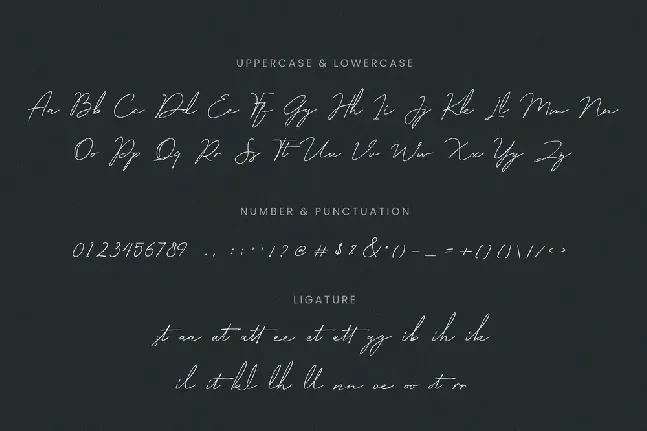 UPPERCASE & LOWERCASE
Aa Bb Cc Dd Ee Ff Gg Hh Ii Jj Kk Ll Mm Nn
Oo Pp Qq Rr Ss Tt Uu Vv Ww Xx Yy Zz
NUMBER & PUNCTUATION
0123456789 . , : ; " ' ! ? @ # $ % & * () - _ = + {} [] \ | / < >
LIGATURE
st aa at att ee et ett gg ib ih ik
il it kl lh ll nn oe oo ot rr